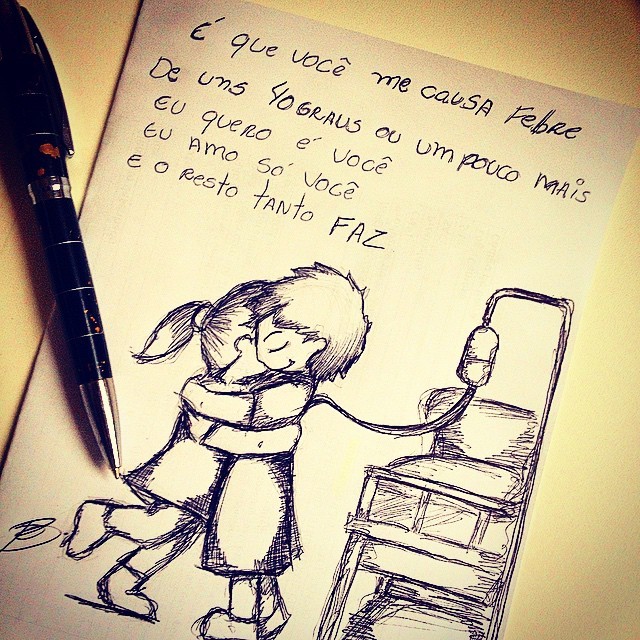 É que você me causa febre
De uns 40graus ou um pouco mais
Eu quero é você
Eu amo só você
E o resto tanto FAZ